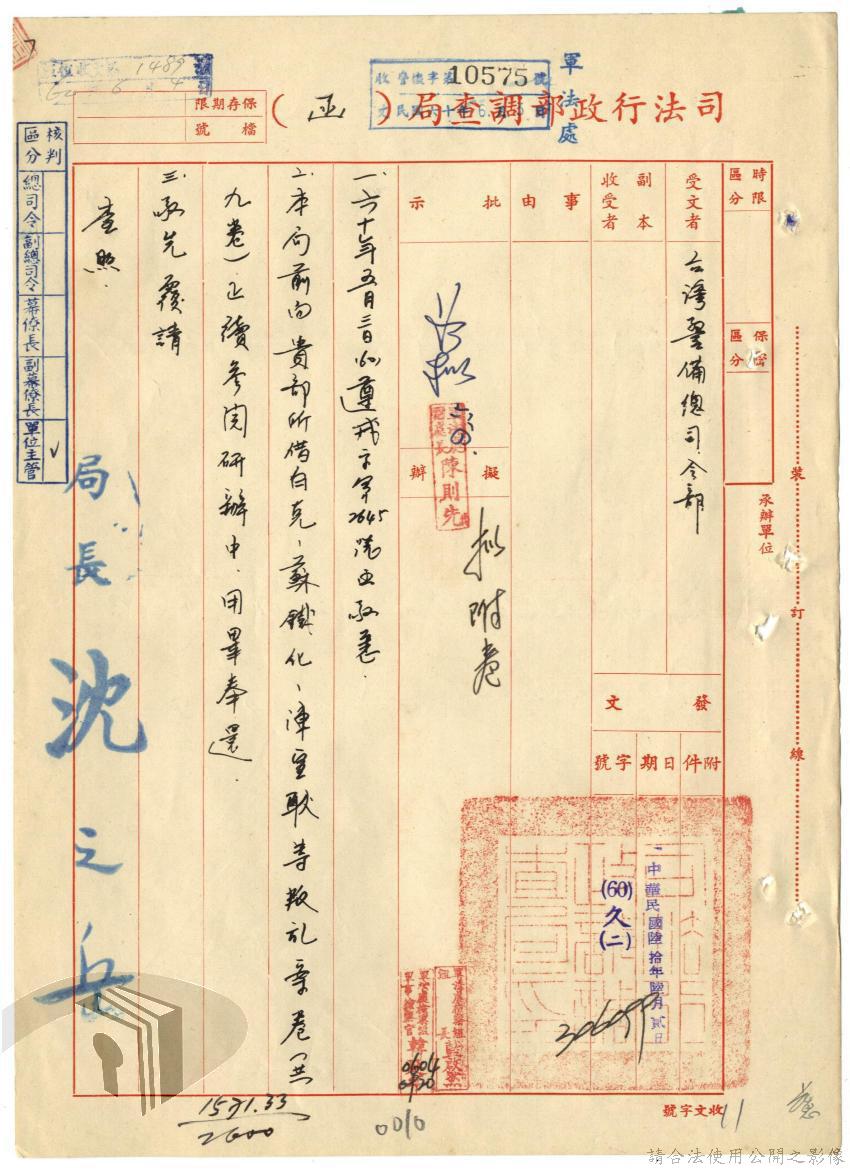 司法行政部調查局（函）
軍法處
收 警 號
10575
1489
保存期限
檔號
時限區分
保密區分
承辦單位
受文者
台灣警備總司令部
副本收受者
發文
附件
日期
字號
中華民國陸拾年陸月貳日
(60)久(二)
306099
事由
批示
擬辦
拟附卷
陳則先
一、六十年五月三日(60)遵戒字第2645號函敬悉.
二、本局前向 貴部所借白克、蘇鐵化、陳聖耿等叛乱案卷(共
九卷)正續參閱研辦中.用畢奉還.
三、敬先覆請
查照.
局長 沈之岳
核判區分
總司令
副總司令
幕僚長
副幕僚長
單位主管
裝
訂
線
0604
0720
收文字號
11
1571.33
2600
0010
請合法使用公開之影像